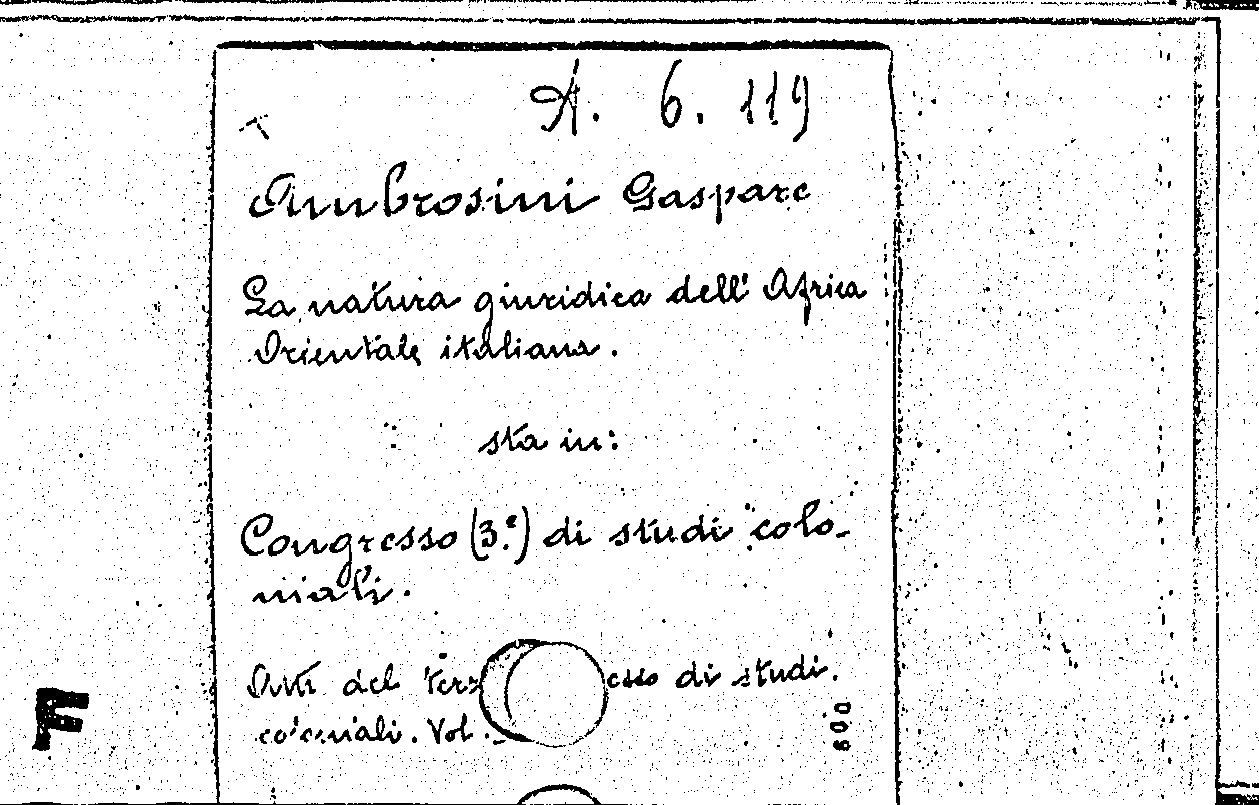 A. 6. 119
Ambrosini Gaspare
La natura giuridica dell' Africa
Orientale italiana.
sta in:
Congresso (3.º) di studi colo-
niali.
Atti del terz esso di studi.
coloniali. Vol.
600
F